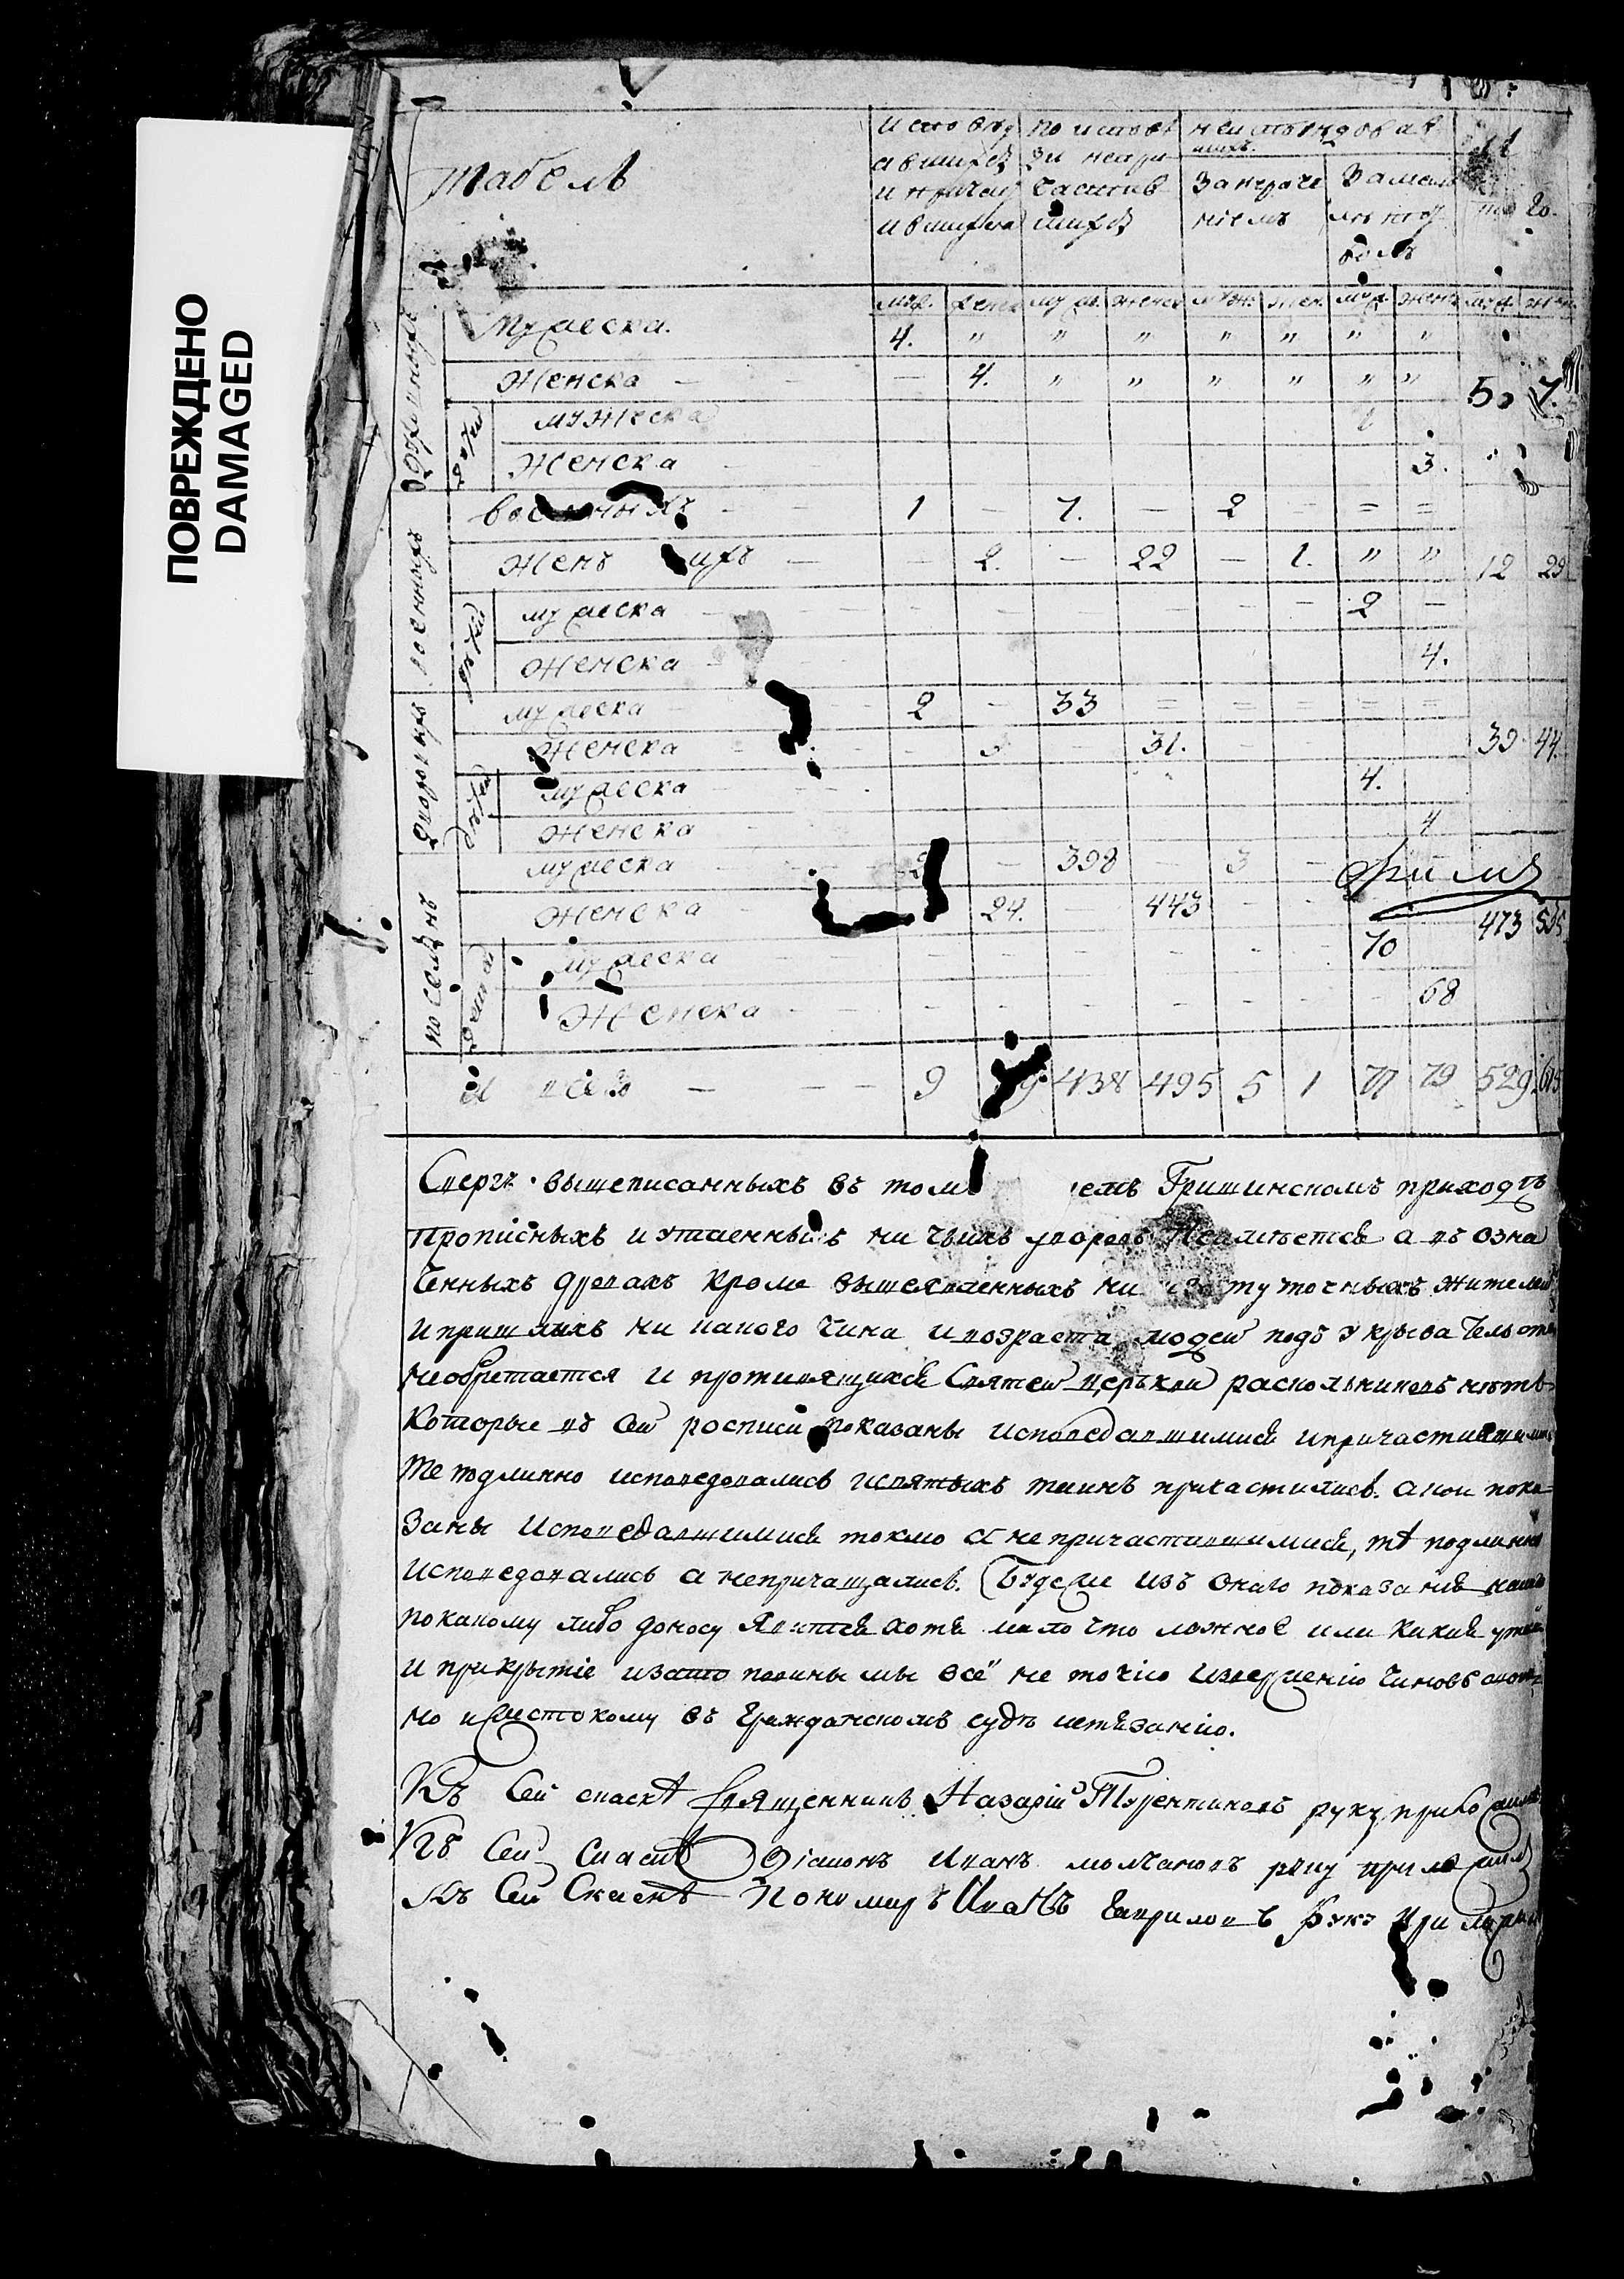 ПОВРЕЖДЕНО
DAMAGED
табель
исповед по испов неисповедовав
авшихся ди непри шихъ
и причас частив занераче замало
ившихся шихся ниемъ лѣтст
вомъ
муж. женс муж. женск муж. жен. муж. жен муж жен
духовныхъ
Мужеска. 4. " " " " " " "
Женска — — 4. " " " " " " 5 7.
дѣтей мужеска 1
Женска 3.
военныхъ
военныхъ 1 — 7. — 2 — = =
Женъ ихъ — — 2. — 22 — 1. " " 12 29
дѣтей мужеска — — — — 2 —
Женска 4.
дворовыхъ
мужеска 2 — 33 = = = = =
Женска — 31. — 39 44.
дѣтей мужеска 4.
Женска 4
поселянъ
мужеска — 398 — 3 —
Женска 24. — 443 — — 473
дѣтей мужеска — — — — — 70
Женска — — — — — — — 68
И всего — — — 9 438 495 5 1 77 79 529
Сверхъ вышеписанныхъ въ том Гришинскомъ приходѣ
прописныхъ и утаенныхъ ни чьихъ дворовъ Неимѣется а въ озна
ченныхъ дворахъ кроме вышеявленныхъ ни изъ туточныхъ жителей
и пришлыхъ ни какого чина и возраста людей подъ укрывательствомъ
необретается и противящихся Святей церькви раскольниковъ нѣтъ
Которые въ Сей росписи показаны исповедавшимися и причастившимися
те подлинно исповедовались и святыхъ таинъ причастились. а кои пока
заны Исповедавшимися токмо а не причастившимися, тѣ подлинно
исповедовались а непричащались. Буде же изъ онаго показания нашего
покакому либо доносу явится хотя мало что ложное или какия утайки
и прикрытие изато повины мы всё не точию извержению чиновъ
но и жестокому въ Гражданскомъ судѣ истязанию.
Къ Сей скаскѣ Священникъ Назарий Терентиновъ руку приложилъ
Къ Сей Скаскѣ Дьяконъ Иванъ Молчановъ руку приложилъ
Къ Сей Скаскѣ Пономаръ Иванъ Гавриловъ руку приложилъ